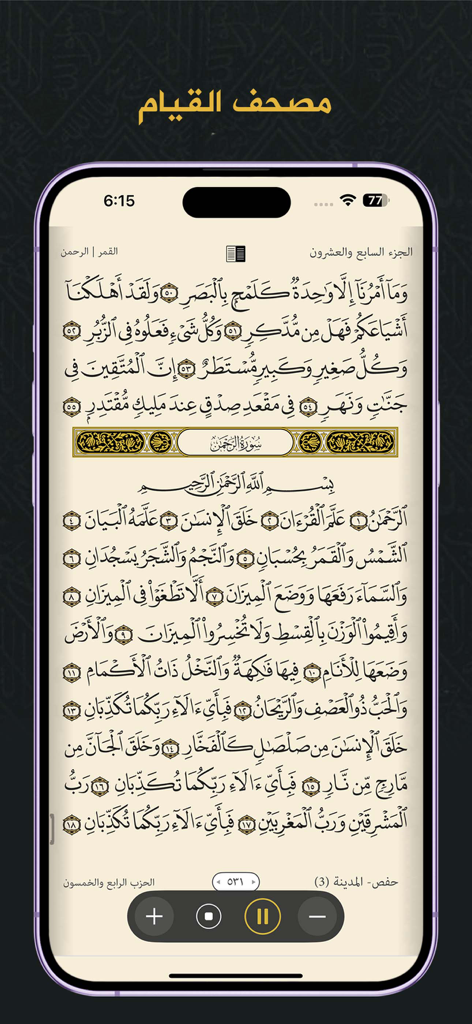 مصحف القيام
6:15
77
الجزء السابع والعشرون
القمر | الرحمن
وَمَا أَمْرُنَا إِلَّا وَاحِدَةٌ كَلَمْحٍ بِالْبَصَرِ ٥٠ وَلَقَدْ أَهْلَكْنَا
أَشْيَاعَكُمْ فَهَلْ مِن مُّدَّكِرٍ ٥١ وَكُلُّ شَيْءٍ فَعَلُوهُ فِي الزُّبُرِ ٥٢
وَكُلُّ صَغِيرٍ وَكَبِيرٍ مُّسْتَطَرٌ ٥٣ إِنَّ الْمُتَّقِينَ فِي
جَنَّاتٍ وَنَهَرٍ ٥٤ فِي مَقْعَدِ صِدْقٍ عِندَ مَلِيكٍ مُّقْتَدِرٍ ٥٥
سُورَةُ الرَّحْمَٰن
بِسْمِ اللَّهِ الرَّحْمَٰنِ الرَّحِيمِ
الرَّحْمَٰنُ ١ عَلَّمَ الْقُرْءَانَ ٢ خَلَقَ الْإِنسَٰنَ ٣ عَلَّمَهُ الْبَيَانَ ٤
الشَّمْسُ وَالْقَمَرُ بِحُسْبَانٍ ٥ وَالنَّجْمُ وَالشَّجَرُ يَسْجُدَانِ ٦
وَالسَّمَاءَ رَفَعَهَا وَوَضَعَ الْمِيزَانَ ٧ أَلَّا تَطْغَوْا فِي الْمِيزَانِ ٨
وَأَقِيمُوا الْوَزْنَ بِالْقِسْطِ وَلَا تُخْسِرُوا الْمِيزَانَ ٩ وَالْأَرْضَ
وَضَعَهَا لِلْأَنَامِ ١٠ فِيهَا فَٰكِهَةٌ وَالنَّخْلُ ذَاتُ الْأَكْمَامِ ١١
وَالْحَبُّ ذُو الْعَصْفِ وَالرَّيْحَانُ ١٢ فَبِأَيِّ ءَالَاءِ رَبِّكُمَا تُكَذِّبَانِ ١٣
خَلَقَ الْإِنسَٰنَ مِن صَلْصَٰلٍ كَالْفَخَّارِ ١٤ وَخَلَقَ الْجَانَّ مِن
مَّارِجٍ مِّن نَّارٍ ١٥ فَبِأَيِّ ءَالَاءِ رَبِّكُمَا تُكَذِّبَانِ ١٦ رَبُّ
الْمَشْرِقَيْنِ وَرَبُّ الْمَغْرِبَيْنِ ١٧ فَبِأَيِّ ءَالَاءِ رَبِّكُمَا تُكَذِّبَانِ ١٨
حفص- المدينة (3)
٥٣١
الحزب الرابع والخمسون